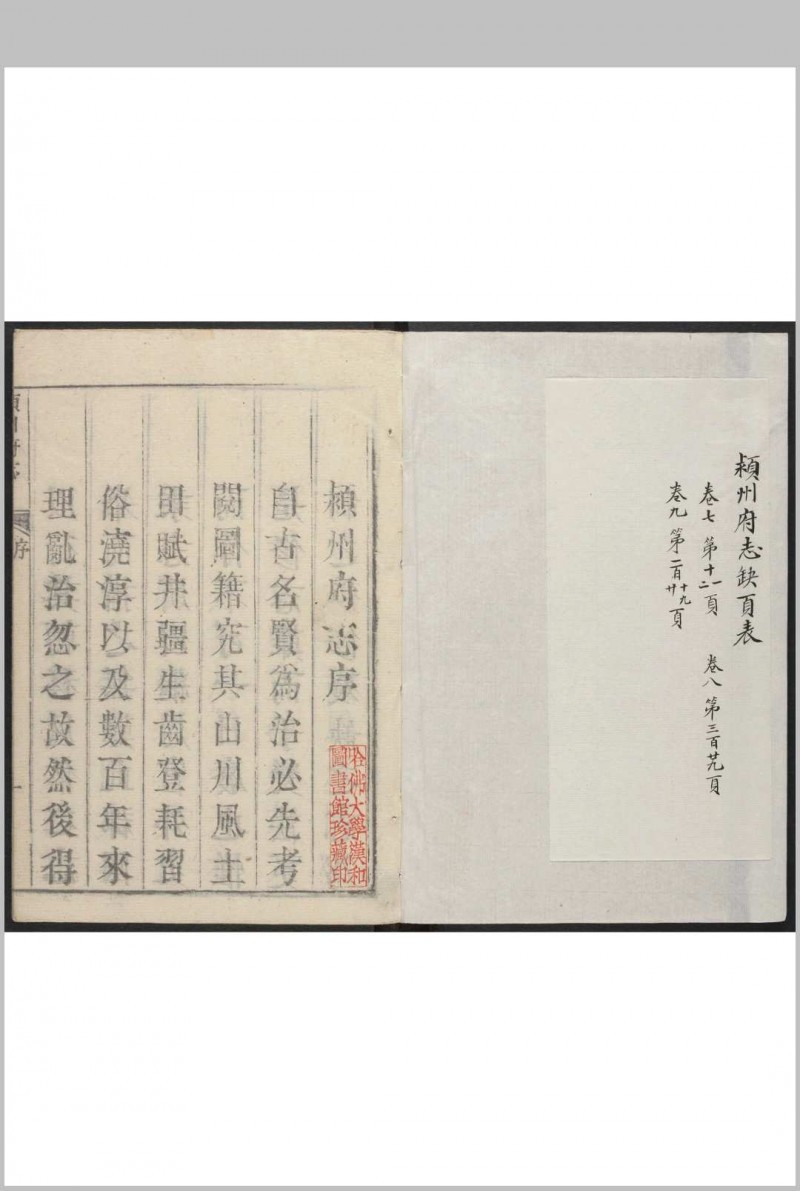 頴州府志缺頁表
卷七 第十一二頁 卷八 第三百卅九頁
卷九 第二百十九廿頁
頴州府志序
自古名賢為治必先考
閱圖籍究其山川風土
田賦井疆生齒登耗習
俗澆淳以及數百年來
理亂治忽之故然後得
哈佛大學漢和
圖書館珍藏印
序
一